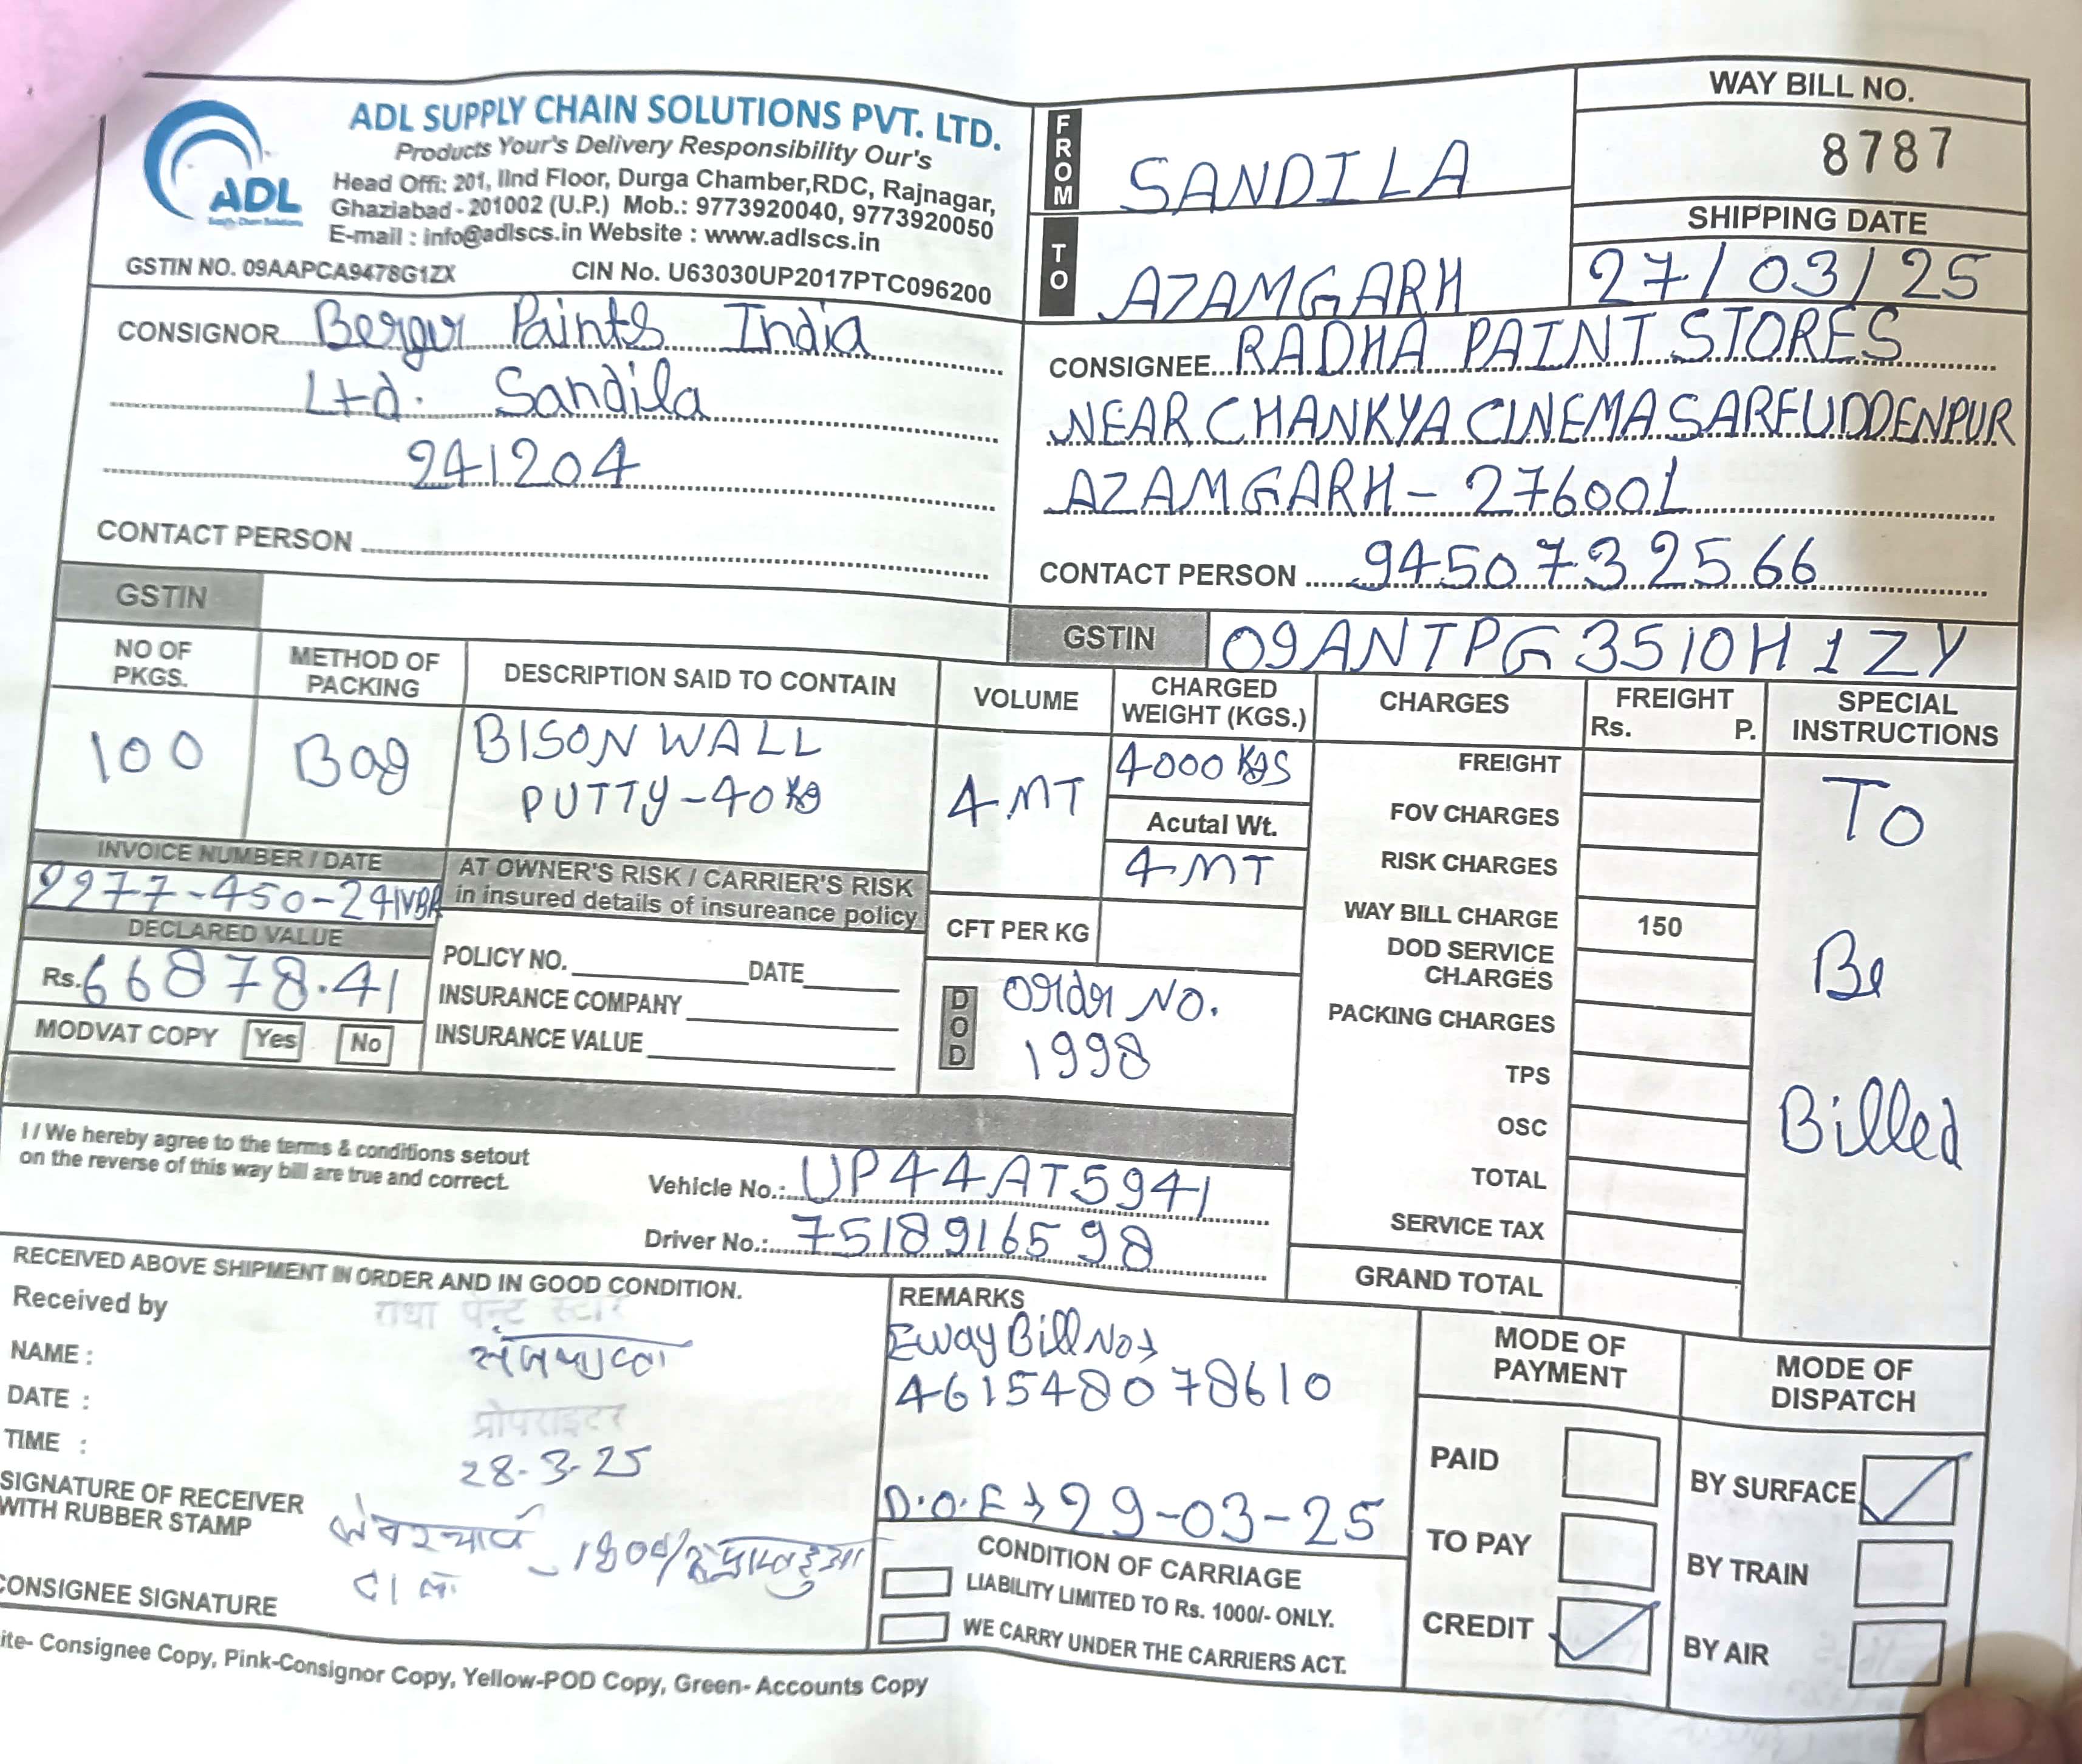 ADL SUPPLY CHAIN SOLUTIONS PVT. LTD.
Products Your's Delivery Responsibility Our's
Head Offi: 201, IInd Floor, Durga Chamber,RDC, Rajnagar,
Ghaziabad - 201002 (U.P.) Mob.: 9773920040, 9773920050
E-mail : info@adlscs.in Website : www.adlscs.in
ADL
Supply Chain Solutions
GSTIN NO. 09AAPCA9478G1ZX CIN No. U63030UP2017PTC096200
FROM SANDILA
TO AZAMGARH
WAY BILL NO.
8787
SHIPPING DATE
27/03/25
CONSIGNOR Berger Paints India
Ltd. Sandila
241204
CONTACT PERSON
GSTIN
CONSIGNEE RADHA PAINT STORES
NEAR CHANKYA CINEMA SARFUDDENPUR
AZAMGARH - 276001
CONTACT PERSON 9450732566
GSTIN 09ANTPG3510H1ZY
NO OF PKGS.
100
METHOD OF PACKING
Bag
DESCRIPTION SAID TO CONTAIN
BISON WALL
PUTTY-40 Kg
VOLUME
4 MT
CHARGED WEIGHT (KGS.)
4000 KGS
Acutal Wt.
4 MT
CFT PER KG
INVOICE NUMBER / DATE
2977-450-241VBR
DECLARED VALUE
Rs. 66878.41
MODVAT COPY Yes No
AT OWNER'S RISK / CARRIER'S RISK
in insured details of insureance policy
POLICY NO. DATE
INSURANCE COMPANY
INSURANCE VALUE
DOD
Order NO.
1998
CHARGES
FREIGHT
Rs. P.
FREIGHT
FOV CHARGES
RISK CHARGES
WAY BILL CHARGE 150
DOD SERVICE CHARGES
PACKING CHARGES
TPS
OSC
TOTAL
SERVICE TAX
GRAND TOTAL
SPECIAL INSTRUCTIONS
To
Be
Billed
I / We hereby agree to the terms & conditions setout
on the reverse of this way bill are true and correct.
Vehicle No.: UP44AT5941
Driver No.: 7518916598
RECEIVED ABOVE SHIPMENT IN ORDER AND IN GOOD CONDITION.
Received by
राधा पेन्ट स्टोर
NAME :
DATE :
प्रोपराइटर
TIME :
28-3-25
SIGNATURE OF RECEIVER
WITH RUBBER STAMP
CONSIGNEE SIGNATURE
REMARKS
Eway Bill No→
461548078610
D.O.E → 29-03-25
CONDITION OF CARRIAGE
LIABILITY LIMITED TO Rs. 1000/- ONLY.
WE CARRY UNDER THE CARRIERS ACT.
MODE OF PAYMENT
PAID
TO PAY
CREDIT
MODE OF DISPATCH
BY SURFACE
BY TRAIN
BY AIR
ite- Consignee Copy, Pink-Consignor Copy, Yellow-POD Copy, Green- Accounts Copy